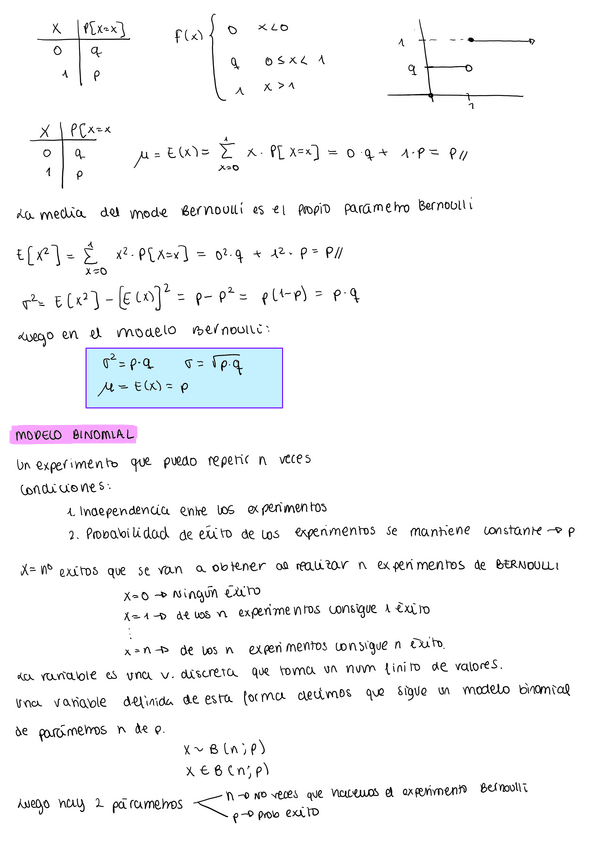 X | P[X=x]
0 | q
1 | p
f(x) { 0 x<0
q 0≤x<1
1 x>1
1
q
1
X | P[X=x
0 | q
1 | p
μ = E(x) = Σ x · P[X=x] = 0·q + 1·p = p//
1
x=0
La media del mode Bernoulli es el propio parámetro Bernoulli
E[x²] = Σ x²·P[X=x] = 0²·q + 1²·p = p//
1
x=0
σ² = E[x²] - [E(x)]² = p - p² = p(1-p) = p·q
Luego en el modelo Bernoulli:
σ² = p·q σ = √p·q
μ = E(x) = p
MODELO BINOMIAL
Un experimento que puedo repetir n veces
Condiciones:
1. Independencia entre los experimentos
2. Probabilidad de éxito de los experimentos se mantiene constante → p
X = nº exitos que se van a obtener al realizar n experimentos de BERNOULLI
x=0 → Ningún éxito
x=1 → de los n experimentos consigue 1 éxito
⋮
x=n → de los n experimentos consigue n éxito.
La variable es una v. discreta que toma un num finito de valores.
Una variable definida de esta forma decimos que sigue un modelo binomial
de parámetros n de p.
X ~ B(n;p)
X ∈ B(n;p)
Luego hay 2 párametros
n → Nº veces que hacemos el experimento Bernoulli
p → prob exito